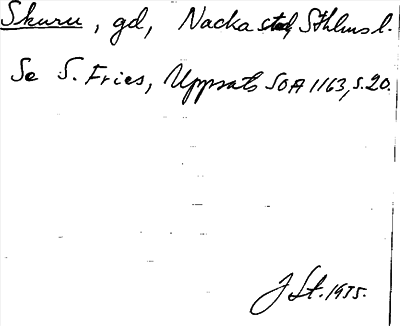 Skuru, gd, Nacka stad, Sthlms l.
Se S. Fries, Uppsats SOA 1163, s. 20.
J St. 1955.